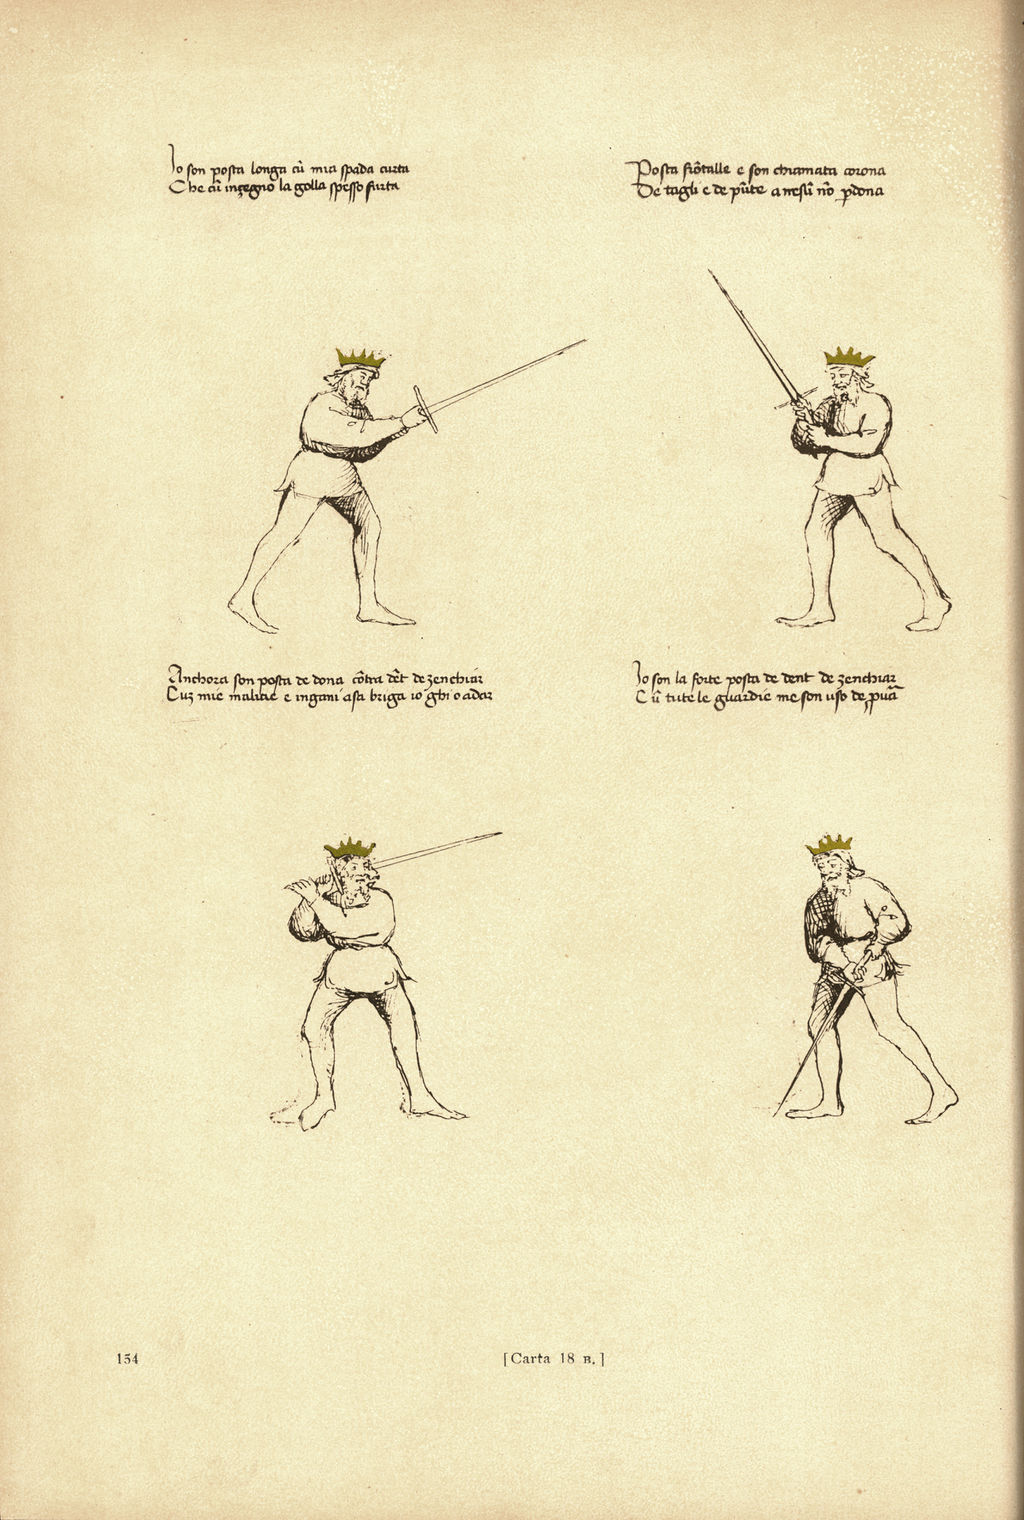 Io son posta longa cū mia spada curta
Che cū inzegno la golla spesso furta
Posta frōtalle e son chiamata corona
De tagli e de pūte a nesū nō pdona
Anchora son posta de dona cōtra dēt de zenchiar
Cuz mie malicie e ingani asa briga io ghi o adar
Io son la forte posta de dent de zenchiar
Cū tute le guardie me son uso de puā
154
[Carta 18 B.]